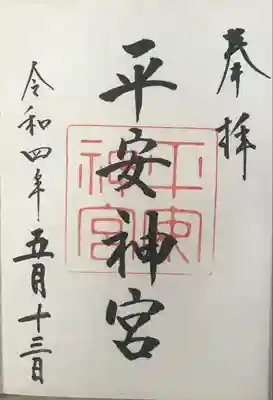 奉拝
平安神宮
平安神宮
令和四年五月十三日